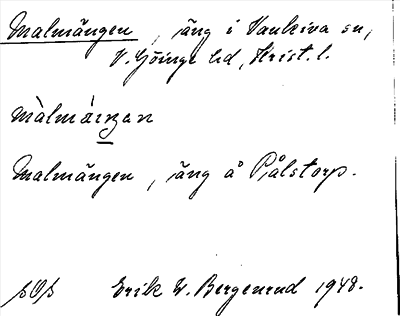 Malmängen, äng i Vankiva sn,
V. Göinge hd, Krist. l.
màlmáiŋan
Malmängen, äng å Pålstorp.
Erik W. Bergenrud 1948.